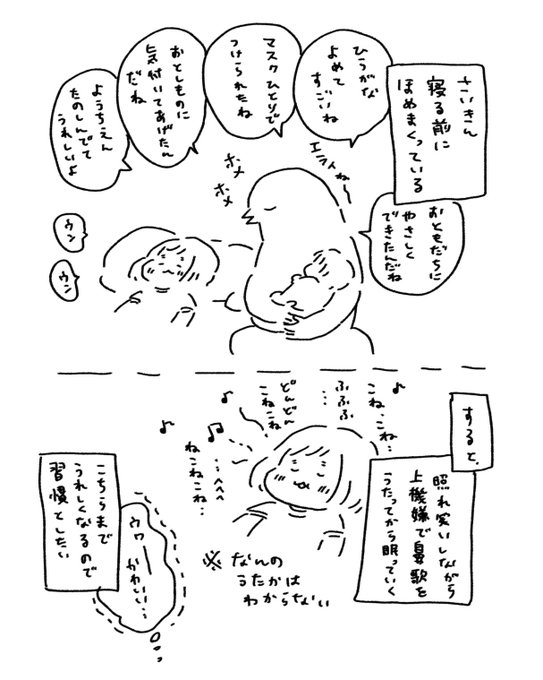 さいきん
寝る前に
ほめまくっている
ひらがな
よめて
すごいね
マスクひとりで
つけられたね
おとしものに
気付いてあげたん
だね
ようちえん
たのしんでて
うれしいよ
おともだちに
やさしく
できたんだね
エライねー
ホメ
ホメ
ウン
ウン
すると、
照れ笑いしながら
上機嫌で鼻歌を
うたってから眠っていく
こね…こね…
ふふふ
…
どんどん
こねこね
…へへへ
ねこねこね…
※なんの
うたかは
わからない
こちらまで
うれしくなるので
習慣としたい
ウワーー
かわいい…